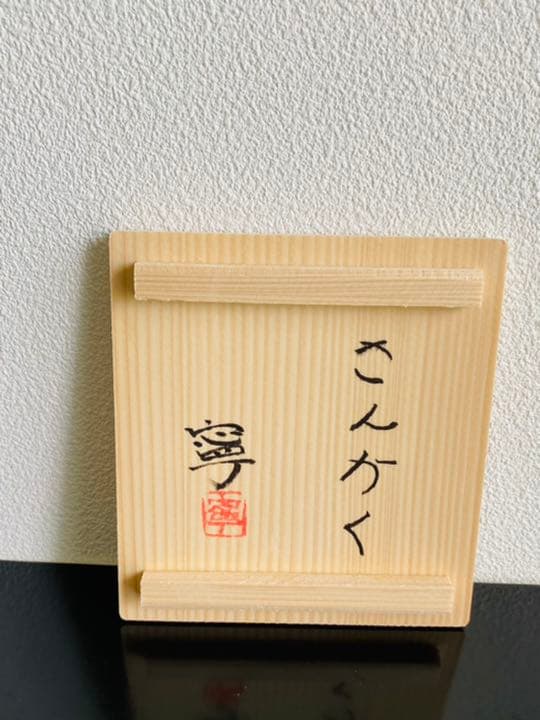 さんかく
寧